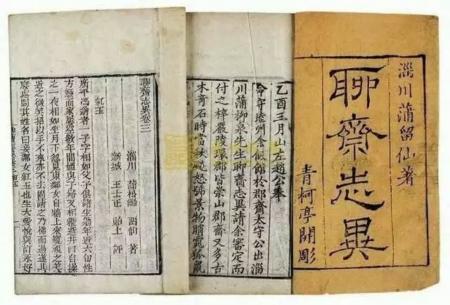 淄川蒲留仙著
聊齋志異
青柯亭開雕
乙酉三月山左趙公奉
命守睦州余假館於郡齋太守公出淄
川蒲柳泉先生聊齋志異請余審定而
付之梓嚴陵環郡皆崇山郡齋又多古
木奇石時當秋飈怒號景物睄窱狐鼠
聊齋志異卷三
淄川 蒲松齡 留仙 著
新城 王士正 貽上 評
紅玉
廣平馮翁者一子字相如父子俱諸生翁年近六旬性
方鯁而家屢空數年間媼與子婦又相繼逝井臼自操
之一夜相如坐月下忽見東鄰女自牆上來窺視之美
近之微笑招以手不來亦不去固請之乃梯而過遂共
寢處問其姓名曰妾鄰女紅玉也生大愛悅與訂永好